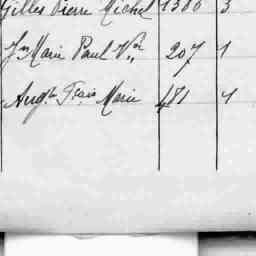 Gilles Pierre Michel 1386 3
Jn Marie Paul Vor 207 1
Augte Fçois Marie 481 4